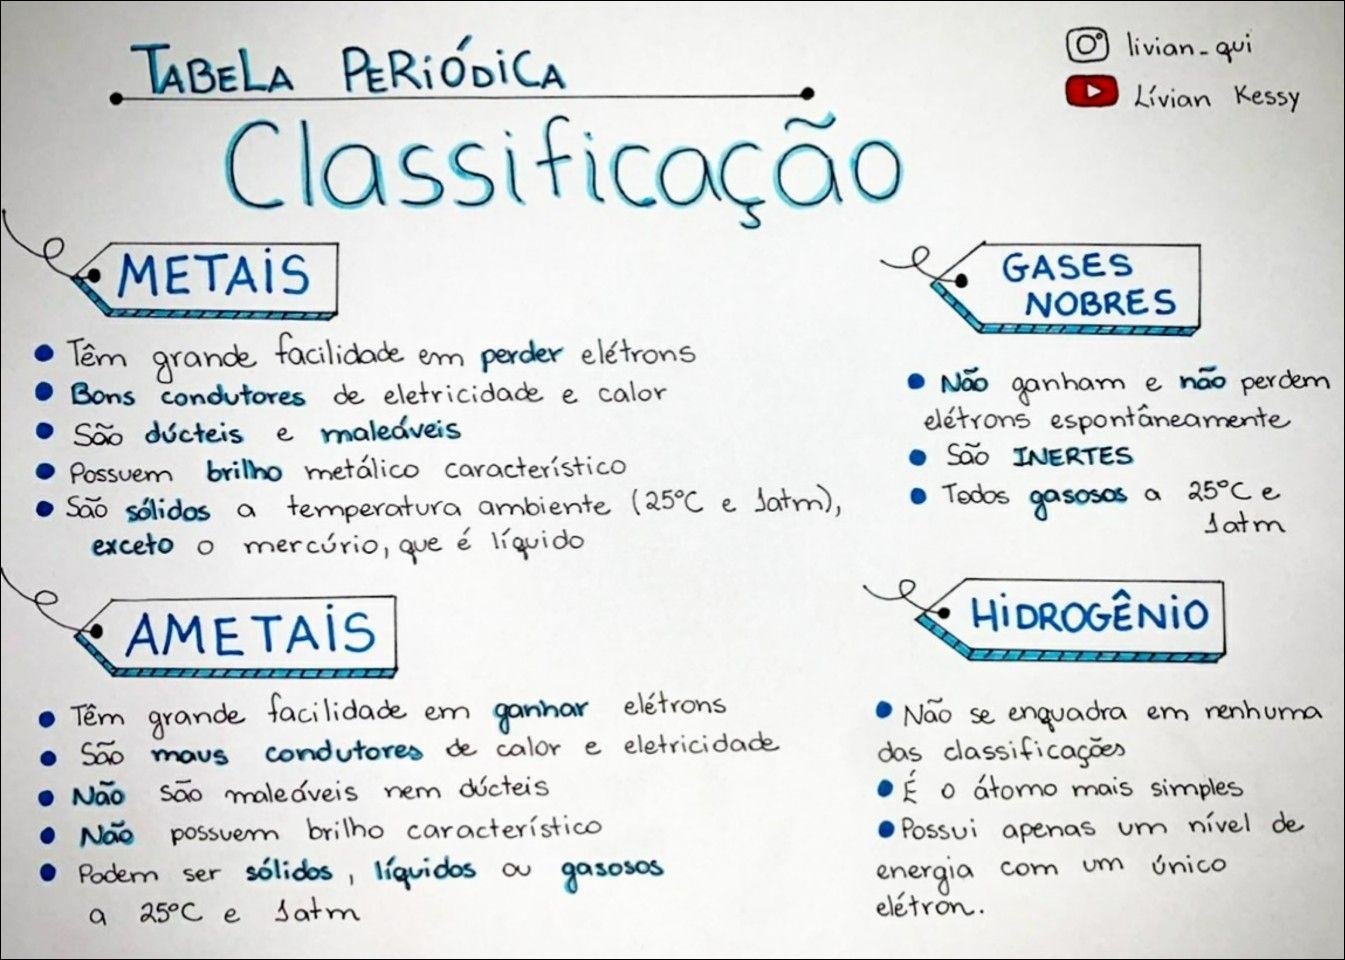 TABELA PERIÓDICA
livian_qui
Lívian Kessy
Classificação
METAIS
Têm grande facilidade em perder elétrons
Bons condutores de eletricidade e calor
São dúcteis e maleáveis
Possuem brilho metálico característico
São sólidos a temperatura ambiente (25°C e 1atm),
exceto o mercúrio, que é líquido
GASES
NOBRES
Não ganham e não perdem
elétrons espontâneamente
São INERTES
Todos gasosos a 25°C e
1atm
AMETAIS
Têm grande facilidade em ganhar elétrons
São maus condutores de calor e eletricidade
Não são maleáveis nem dúcteis
Não possuem brilho característico
Podem ser sólidos, líquidos ou gasosos
a 25°C e 1atm
HIDROGÊNIO
Não se enquadra em nenhuma
das classificações
É o átomo mais simples
Possui apenas um nível de
energia com um único
elétron.